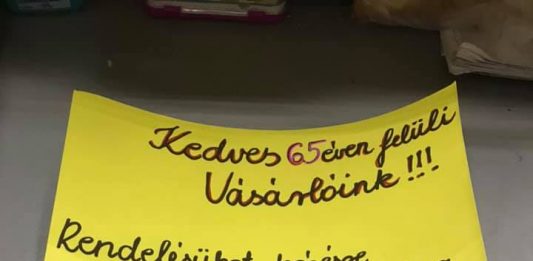 Kedves 65 éven felüli
Vásárlóink!!!
Rendelésüket